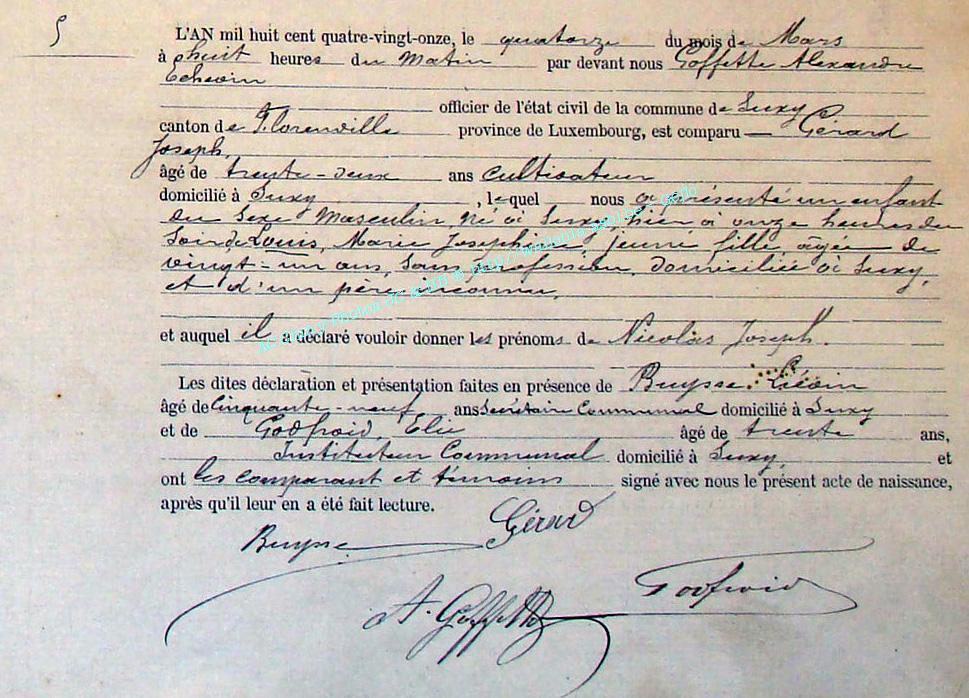 5
L'AN mil huit cent quatre-vingt-onze, le quatorze du mois de Mars
à huit heures du Matin par devant nous Goffette Alexandre
Echevin
officier de l'état civil de la commune de Suxy
canton de Florenville province de Luxembourg, est comparu — Gérard
Joseph,
âgé de trente-deux ans cultivateur
domicilié à Suxy, lequel nous a présenté un enfant
du sexe Masculin, né à Suxy, hier à onze heures du
Soir de Louis, Marie Josephine, jeune fille âgée de
vingt-un ans, sans profession, domiciliée à Suxy,
et d'un père inconnu,
et auquel il a déclaré vouloir donner les prénoms de Nicolas Joseph.
Les dites déclaration et présentation faites en présence de Buysse Liévin
âgé de Cinquante-neuf ans Secrétaire Communal domicilié à Suxy
et de Godfroid, Elie âgé de trente ans,
Instituteur Communal domicilié à Suxy, et
ont les comparant et témoins signé avec nous le présent acte de naissance,
après qu'il leur en a été fait lecture.
Gérard
Buysse
Godfroid
A. Goffette